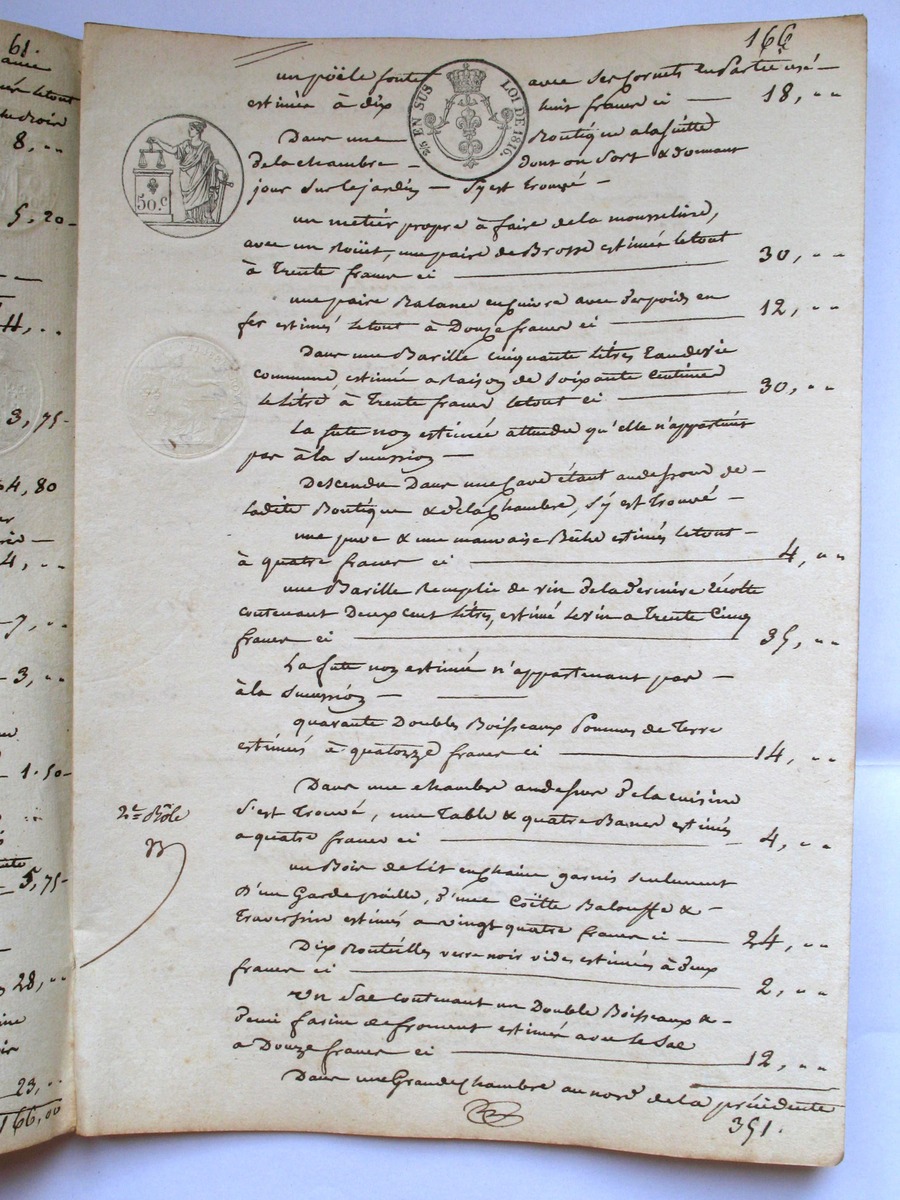 61.
8, „ „
5, 20
H, „ „
3, 75
4, 80
4, „ „
7, „ „
3, „ „
1.50
5,75
28, „ „
23, „ „
166,00
166
un poële fonte avec ses cornets en Partie usé
estimée à dix huit francs ci — 18, „ „
EN SUS LOI DE 1816.
50.c
Dans une Boutique a la suitte
de la chambre — dont on sort & donnant
jour sur le jardin — S'y est trouvé —
un metiér propre à faire de la mousseline,
avec un Roüet, une paire de Brosse estimés le tout
à Trente francs ci — 30, „ „
une paire Balance en Cuivre avec des poids en
fer estimés le tout à Douze francs ci — 12, „ „
Dans une Barille cinquante litres Eau de vie
commune, estimée a Raison de Soixante Centimes
le Litre à Trente francs le tout ci — 30, „ „
La fute non estimée attendu qu'elle n'appartient
pas à la Succession —
Descendu Dans une Cave étant au dessous de —
Ladite Boutique & de la Chambre, S'y est Trouvé —
une & une mauvaise Bêche estimés le tout —
à quatre francs ci — 4, „ „
une Barille Remplie de vin de la derniere récolte
contenant Deux cent Litres, estimé le vin a Trente Cinq
francs ci — 35, „ „
La fute non estimée n'appartenant pas —
à la Succession —
quarante Doubles Boisseaux Pommes de Terre
estimés à quatozze francs ci — 14, „ „
Dans une chambre au dessus de la cuisine
2.e Rôle
S'est Trouvé, une Table & quatre Bancs estimés
a quatre francs ci — 4, „ „
un Bois de Lit en chaine garnis seulement
D'un Garde paille, d'une Coëtte Balouffe & —
Traversin estimés a vingt quatre francs ci — 24, „ „
Dix Bouteilles verre noir vides estimées à deux
francs ci — 2, „ „
Un Sac contenant un Double Boisseaux & —
demi farine de froment estimée avec le Sac
a Douze francs ci — 12, „ „
Dans une Grande Chambre au nord de la précédente
351.